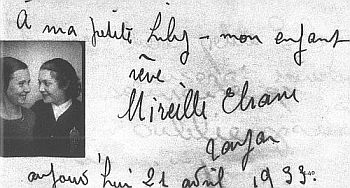 À ma petite Lily – mon enfant
rêvé
Mireille
aujourd'hui 21 avril 1933.